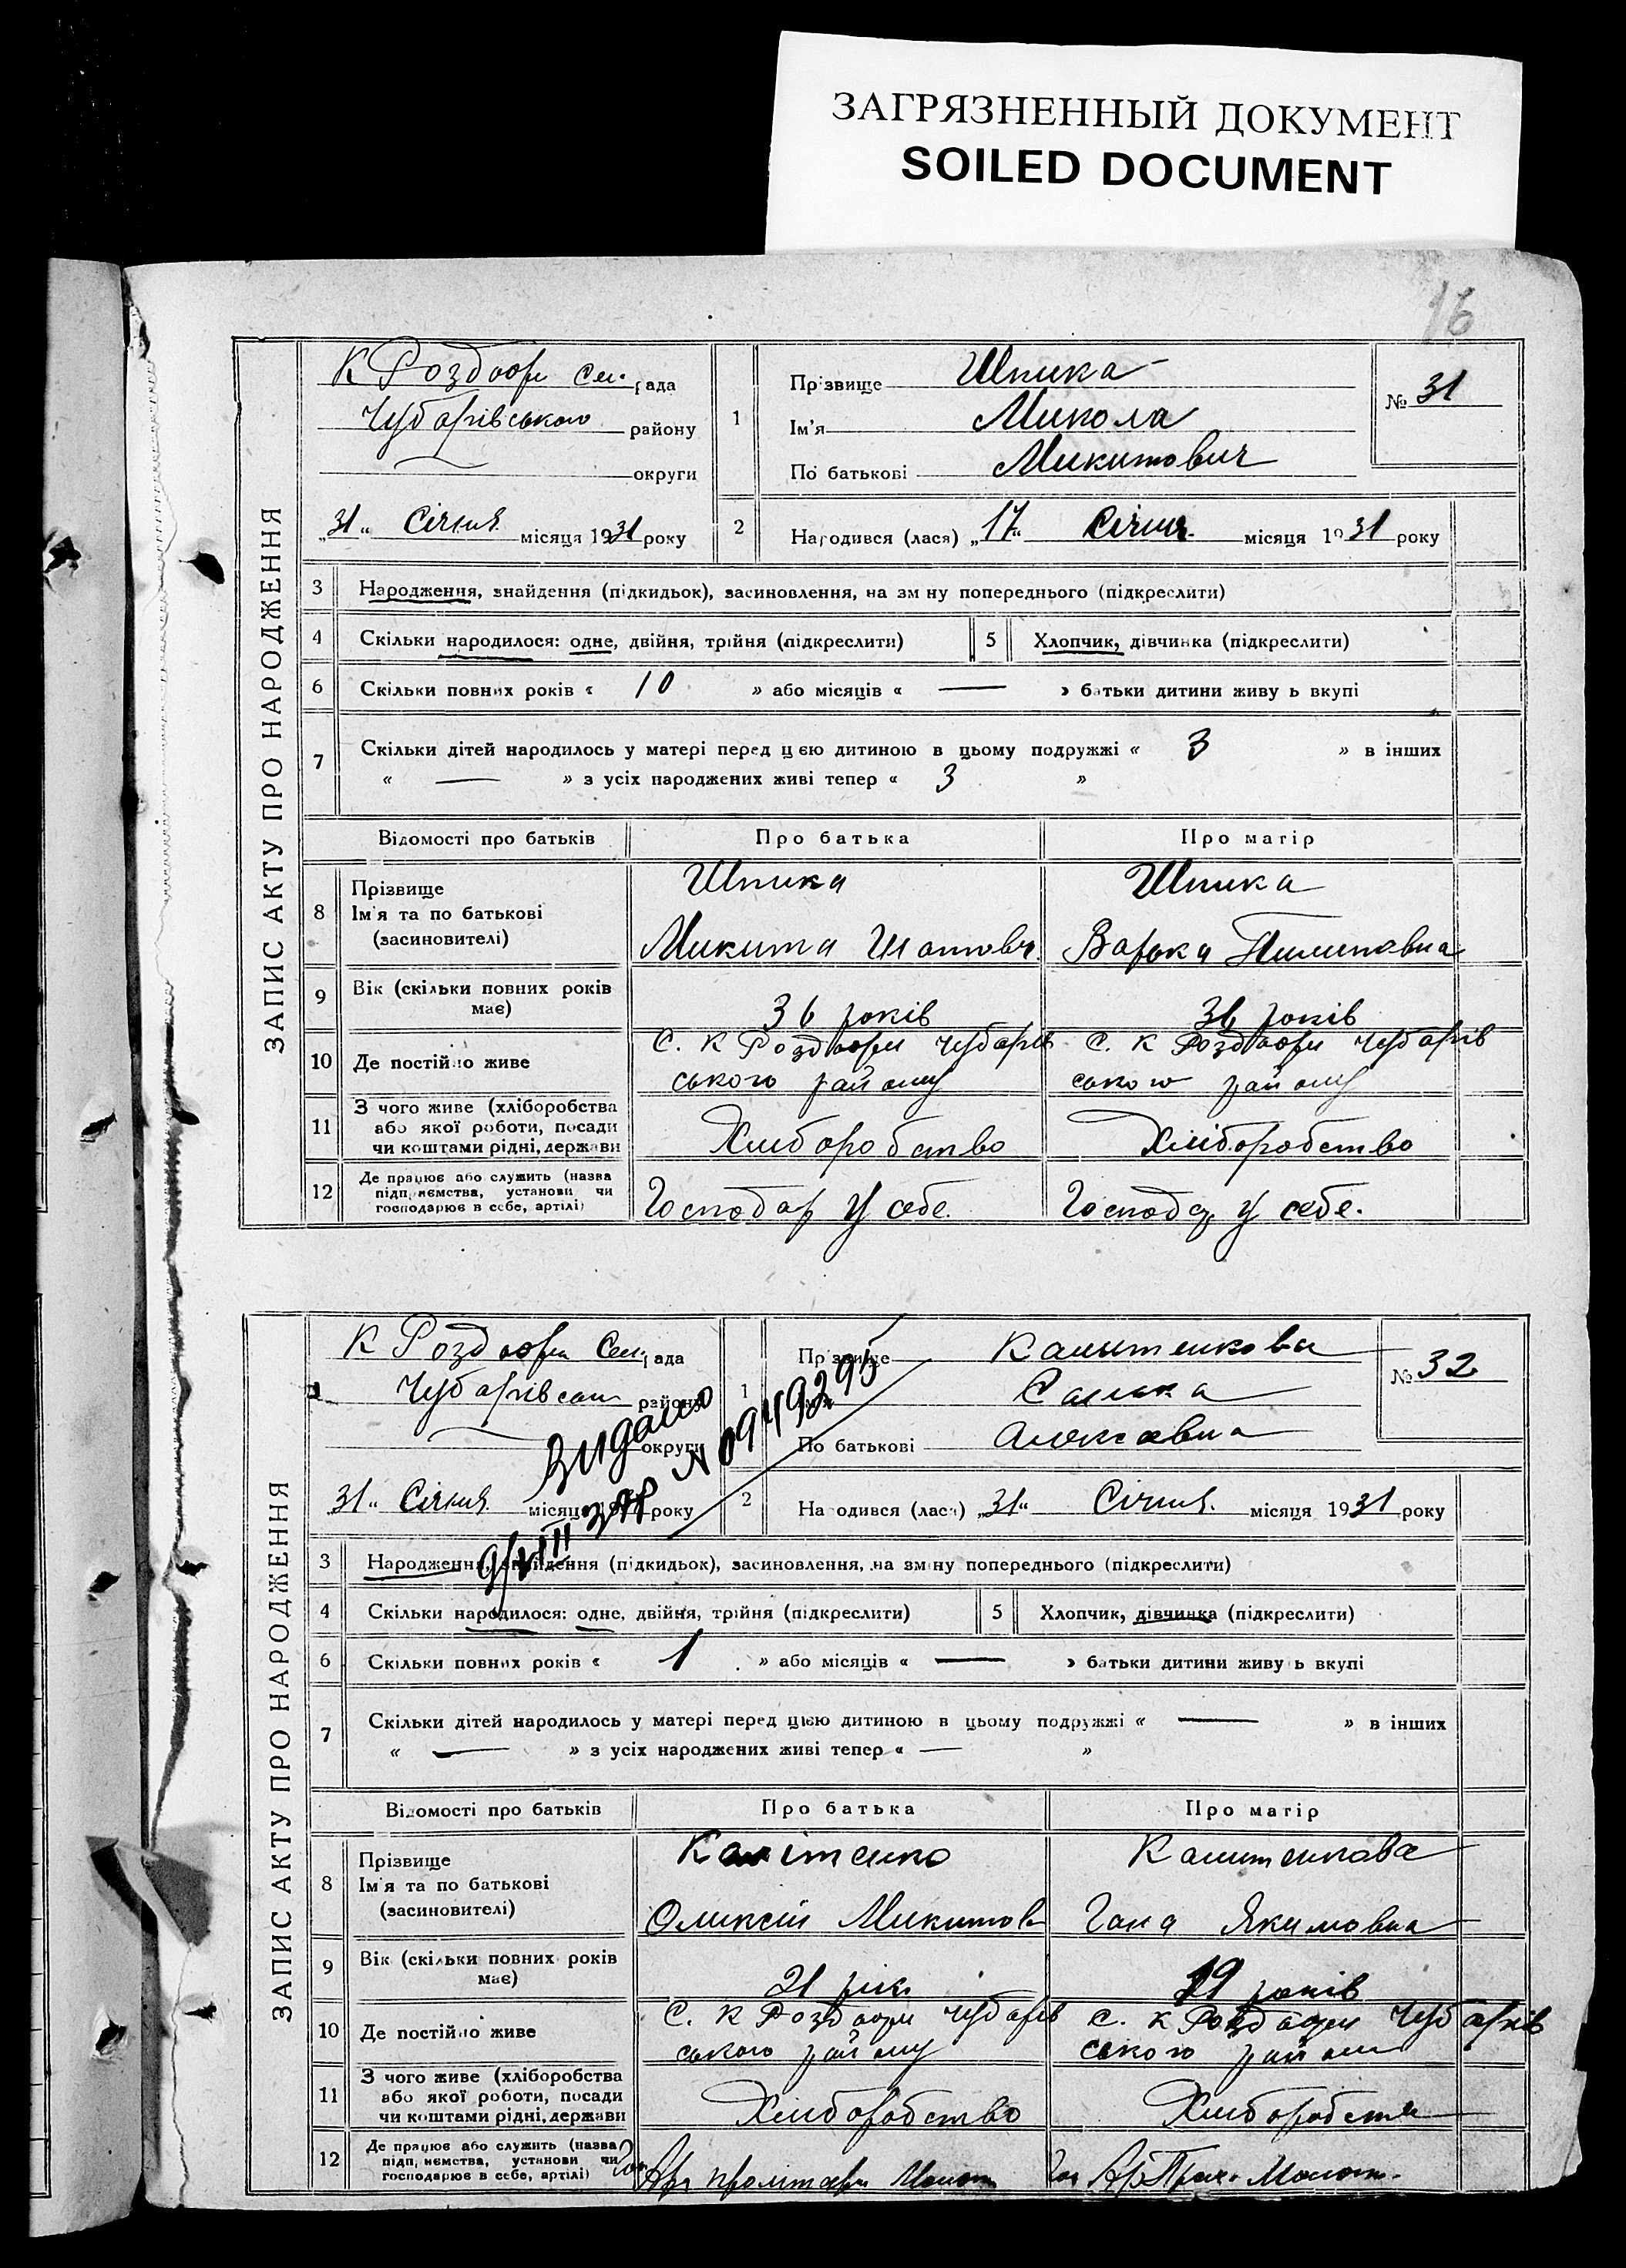 ЗАГРЯЗНЕННЫЙ ДОКУМЕНТ
SOILED DOCUMENT
16
ЗАПИС АКТУ ПРО НАРОДЖЕННЯ
К Роздори Сел. рада
Чубарівського району
округи
„31“ Січня місяця 1931 року
1
Прізвище Шпика
Ім'я Микола
По батькові Микитович
№ 31
2 Народився (лася) „17“ Січня місяця 1931 року
3 Народження, знайдення (підкидьок), засиновлення, на зміну попереднього (підкреслити)
4 Скільки народилося: одне, двійня, трійня (підкреслити) 5 Хлопчик, дівчинка (підкреслити)
6 Скільки повних років « 10 » або місяців « — » батьки дитини живуть вкупі
7 Скільки дітей народилось у матері перед цією дитиною в цьому подружжі « 3 » в інших
« — » з усіх народжених живі тепер « 3 »
Відомості про батьків Про батька Про матір
8 Прізвище Шпика Шпика
Ім'я та по батькові
(засиновителі) Микита Варька Пилиповна
9 Вік (скільки повних років має) 36 років 36 років
10 Де постійно живе С. К Роздори Чубарів С. К Роздори Чубарів
ського району ського району
11 З чого живе (хліборобства
або якої роботи, посади
чи коштами рідні, держави Хліборобство Хліборобство
12 Де працює або служить (назва
підприємства, установи чи
господарює в себе, артілі) Господар у себе. Господар у себе.
ЗАПИС АКТУ ПРО НАРОДЖЕННЯ
К Роздори Сел. рада
Чубарівськ району
округи
31“ Січня місяця 1931 року
Видано
9/VIII ЗАР № 09419295
1
Прізвище Калитенкова
Санька
По батькові Алексевна
№ 32
2 Народився (лася) „31“ Січня місяця 1931 року
3 Народження, знайдення (підкидьок), засиновлення, на зміну попереднього (підкреслити)
4 Скільки народилося: одне, двійня, трійня (підкреслити) 5 Хлопчик, дівчинка (підкреслити)
6 Скільки повних років « 1 » або місяців « — » батьки дитини живуть вкупі
7 Скільки дітей народилось у матері перед цією дитиною в цьому подружжі « — » в інших
« — » з усіх народжених живі тепер « — »
Відомості про батьків Про батька Про матір
8 Прізвище Калітенко Калитенкова
Ім'я та по батькові
(засиновителі) Оликсій Микитов Гана Якимовна
9 Вік (скільки повних років має) 21 рік 19 років
10 Де постійно живе С. К Роздори Чубарів С. К Роздори Чубарів
ського району ського району
11 З чого живе (хліборобства
або якої роботи, посади
чи коштами рідні, держави Хліборобство Хліборобств
12 Де працює або служить (назва
підприємства, установи чи
господарює в себе, артілі)